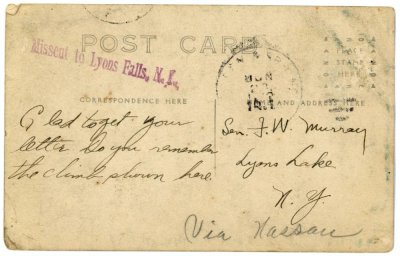 POST CARD
Missent to Lyons Falls, N. Y.
CORRESPONDENCE HERE
AND ADDRESS HERE
PLACE
STAMP
HERE
JUN
Glad to get your
letter Do you remember
the climb shown here.
Gen. F. W. Murray
Lyons Lake
N. Y.
Via Nassau